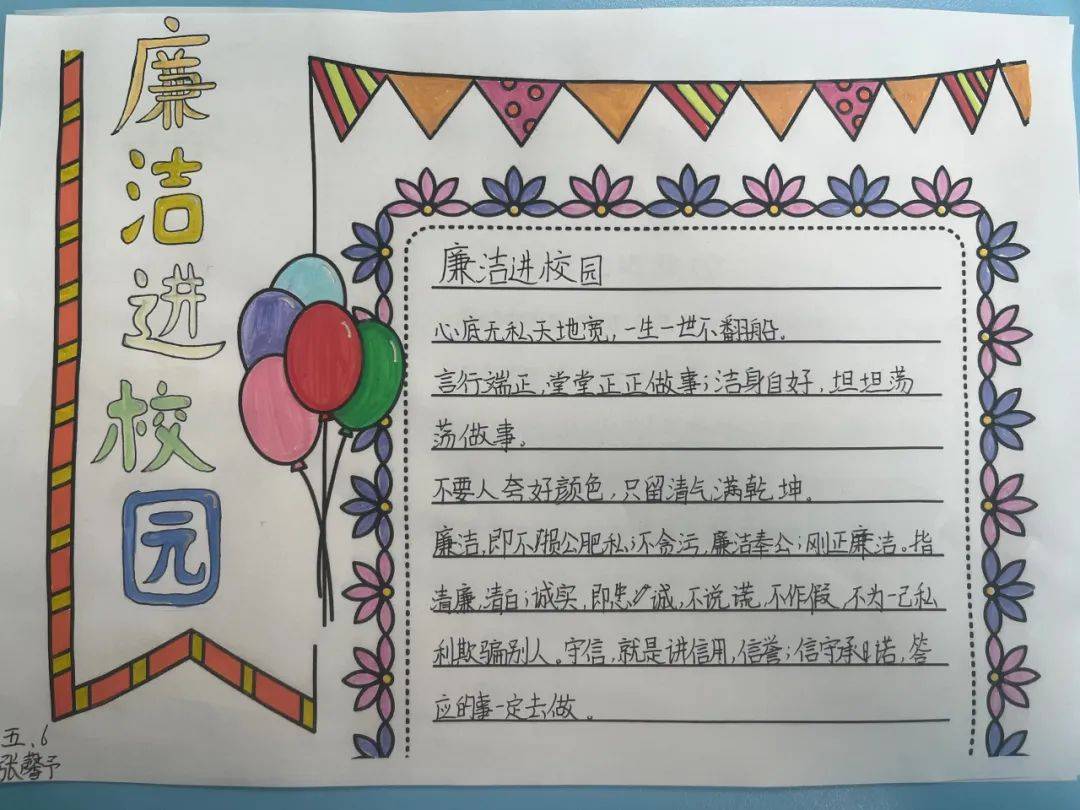 廉洁进校园
廉洁进校园
心底无私天地宽，一生一世不翻船。
言行端正，堂堂正正做事；洁身自好，坦坦荡
荡做事。
不要人夸好颜色，只留清气满乾坤。
廉洁，即不损公肥私；不贪污，廉洁奉公；刚正廉洁。指
清廉，清白；诚实，即忠诚，不说谎，不作假，不为一己私
利欺骗别人。守信，就是讲信用，信誉；信守承诺，答
应的事一定去做。
五、6
张馨予